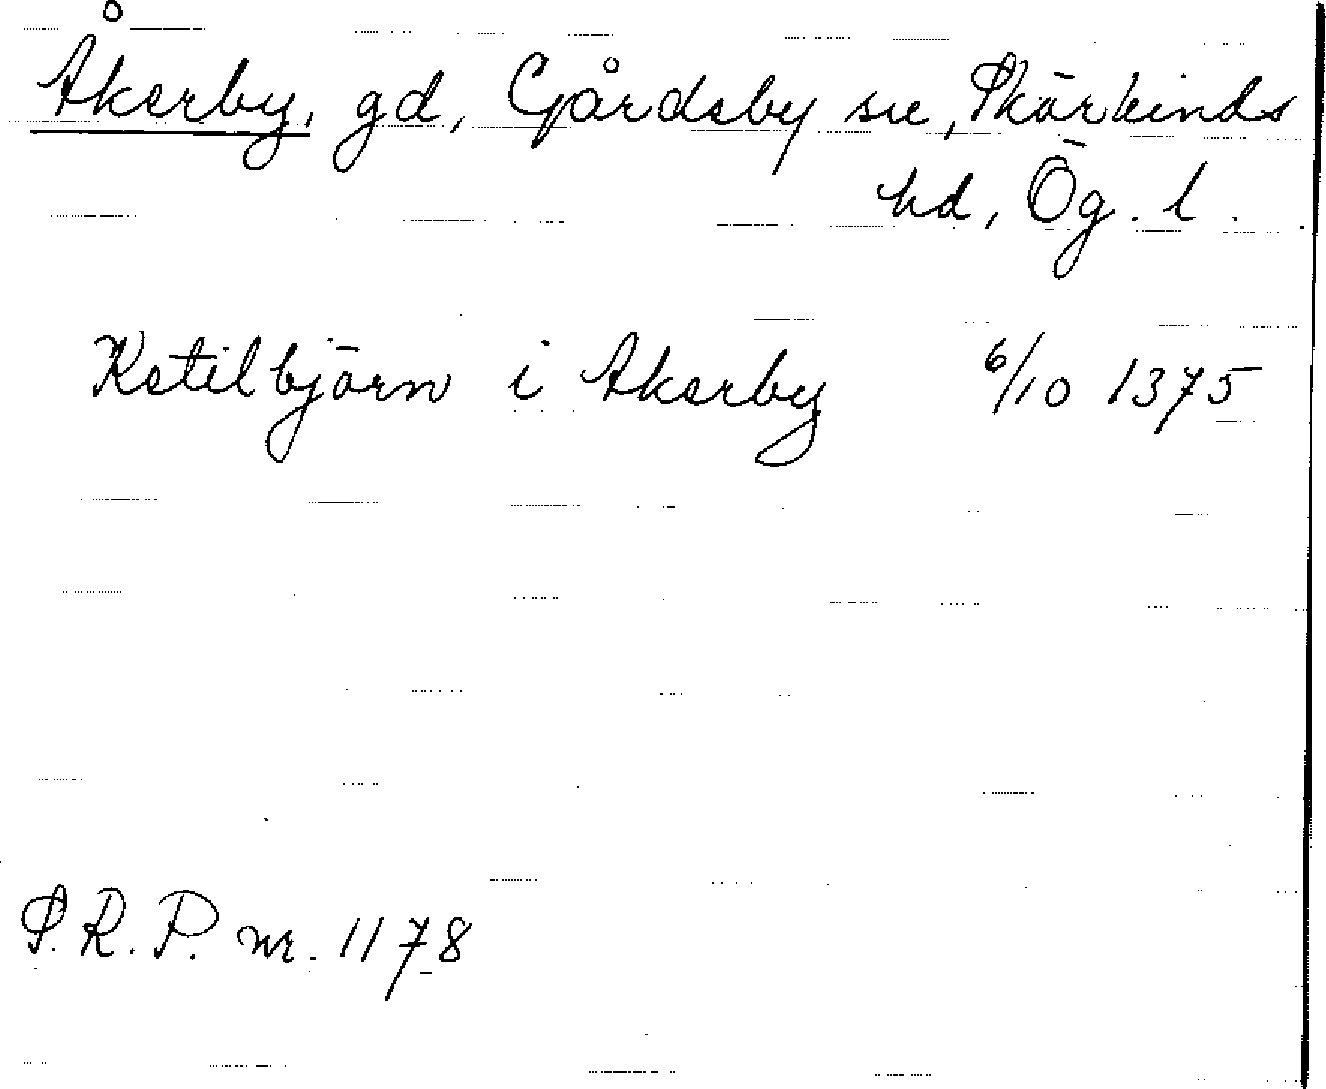 Åkerby, gd, Gårdsby sn, Skärkinds
hd, Ög. l.
Ketilbjörn i Akerby 6/10 1375
S.R.P. nr. 1178